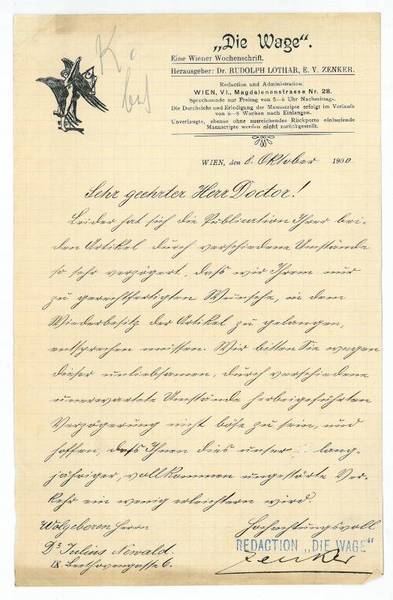 „Die Wage“.
Eine Wiener Wochenschrift.
Herausgeber: Dr. RUDOLPH LOTHAR, E. V. ZENKER.
Redaction und Administration:
WIEN, VI., Magdalenenstrasse Nr. 28.
Sprechstunde nur Freitag von 5—6 Uhr Nachmittags.
Die Durchsicht und Erledigung der Manuscripte erfolgt im Verlaufe
von 6—8 Wochen nach Einlangen.
Unverlangte, ebenso ohne ausreichendes Rückporto einlaufende
Manuscripte werden nicht zurückgestellt.
K.
WIEN, den 8. Oktober 1900.
Sehr geehrter Herr Doctor!
Leider hat sich die Publication Ihrer bei-
den Artikel durch verschiedene Umstände
so sehr verzögert, dass wir Ihrem nur
zu gerechtfertigten Wunsche, in den
Wiederbesitz der Artikel zu gelangen,
entsprechen müssen. Wir bitten Sie wegen
dieser unliebsamen, durch verschiedene
unerwartete Umstände herbeigeführten
Verzögerung nicht böse zu sein, und
hoffen, dass Ihnen dies unser lang-
jähriger, vollkommen ungestörte Ver-
kehr ein wenig erleichtern wird.
Wolgeboren Herrn
Dr. Julius Newald.
IX Beethovengasse 6.
Hochachtungsvoll
REDACTION „DIE WAGE“
Zenker